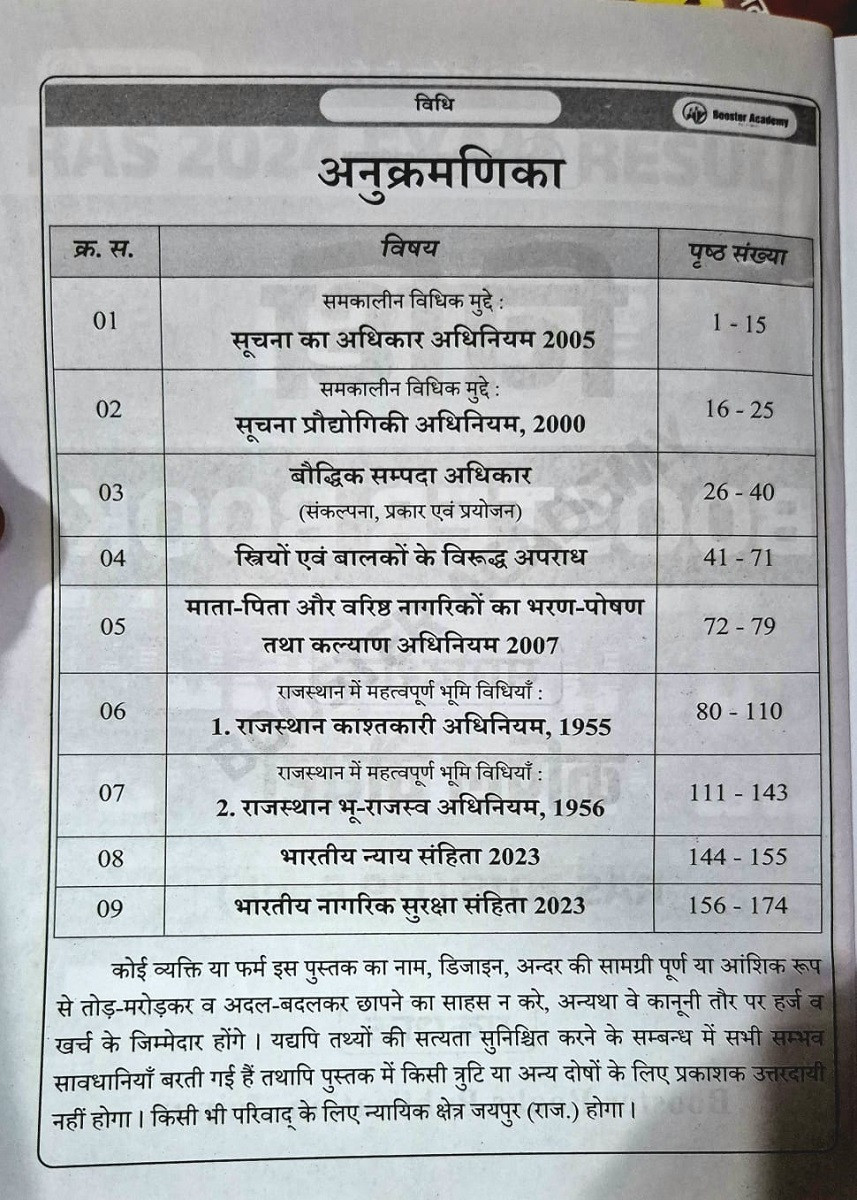 विधि
Booster Academy
अनुक्रमणिका
क्र. स. विषय पृष्ठ संख्या
समकालीन विधिक मुद्दे :
01 सूचना का अधिकार अधिनियम 2005 1 - 15
समकालीन विधिक मुद्दे :
02 सूचना प्रौद्योगिकी अधिनियम, 2000 16 - 25
03 बौद्धिक सम्पदा अधिकार 26 - 40
(संकल्पना, प्रकार एवं प्रयोजन)
04 स्त्रियों एवं बालकों के विरूद्ध अपराध 41 - 71
05 माता-पिता और वरिष्ठ नागरिकों का भरण-पोषण 72 - 79
तथा कल्याण अधिनियम 2007
राजस्थान में महत्वपूर्ण भूमि विधियाँ :
06 1. राजस्थान काश्तकारी अधिनियम, 1955 80 - 110
राजस्थान में महत्वपूर्ण भूमि विधियाँ :
07 2. राजस्थान भू-राजस्व अधिनियम, 1956 111 - 143
08 भारतीय न्याय संहिता 2023 144 - 155
09 भारतीय नागरिक सुरक्षा संहिता 2023 156 - 174
कोई व्यक्ति या फर्म इस पुस्तक का नाम, डिजाइन, अन्दर की सामग्री पूर्ण या आंशिक रूप
से तोड़-मरोड़कर व अदल-बदलकर छापने का साहस न करे, अन्यथा वे कानूनी तौर पर हर्ज व
खर्च के जिम्मेदार होंगे । यद्यपि तथ्यों की सत्यता सुनिश्चित करने के सम्बन्ध में सभी सम्भव
सावधानियाँ बरती गई हैं तथापि पुस्तक में किसी त्रुटि या अन्य दोषों के लिए प्रकाशक उत्तरदायी
नहीं होगा । किसी भी परिवाद् के लिए न्यायिक क्षेत्र जयपुर (राज.) होगा ।